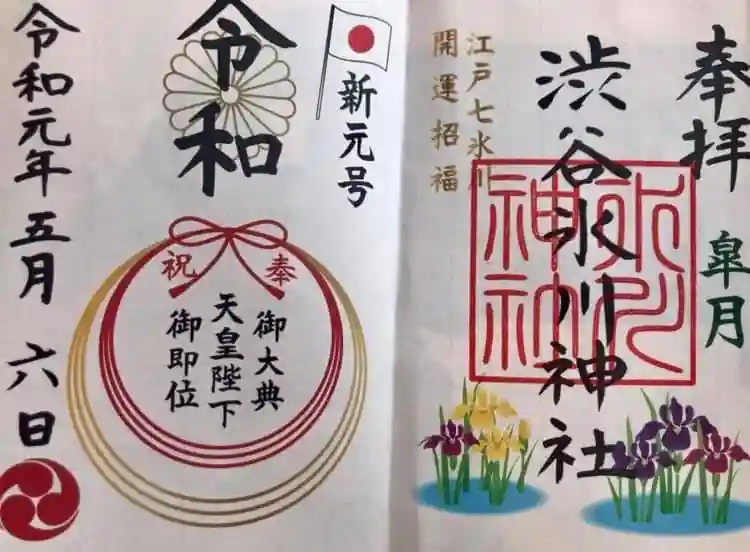 奉拝
皐月
渋谷氷川神社
氷川
神社
江戸七氷川
開運招福
新元号
令和
奉祝
御大典
天皇陛下
御即位
令和元年五月六日